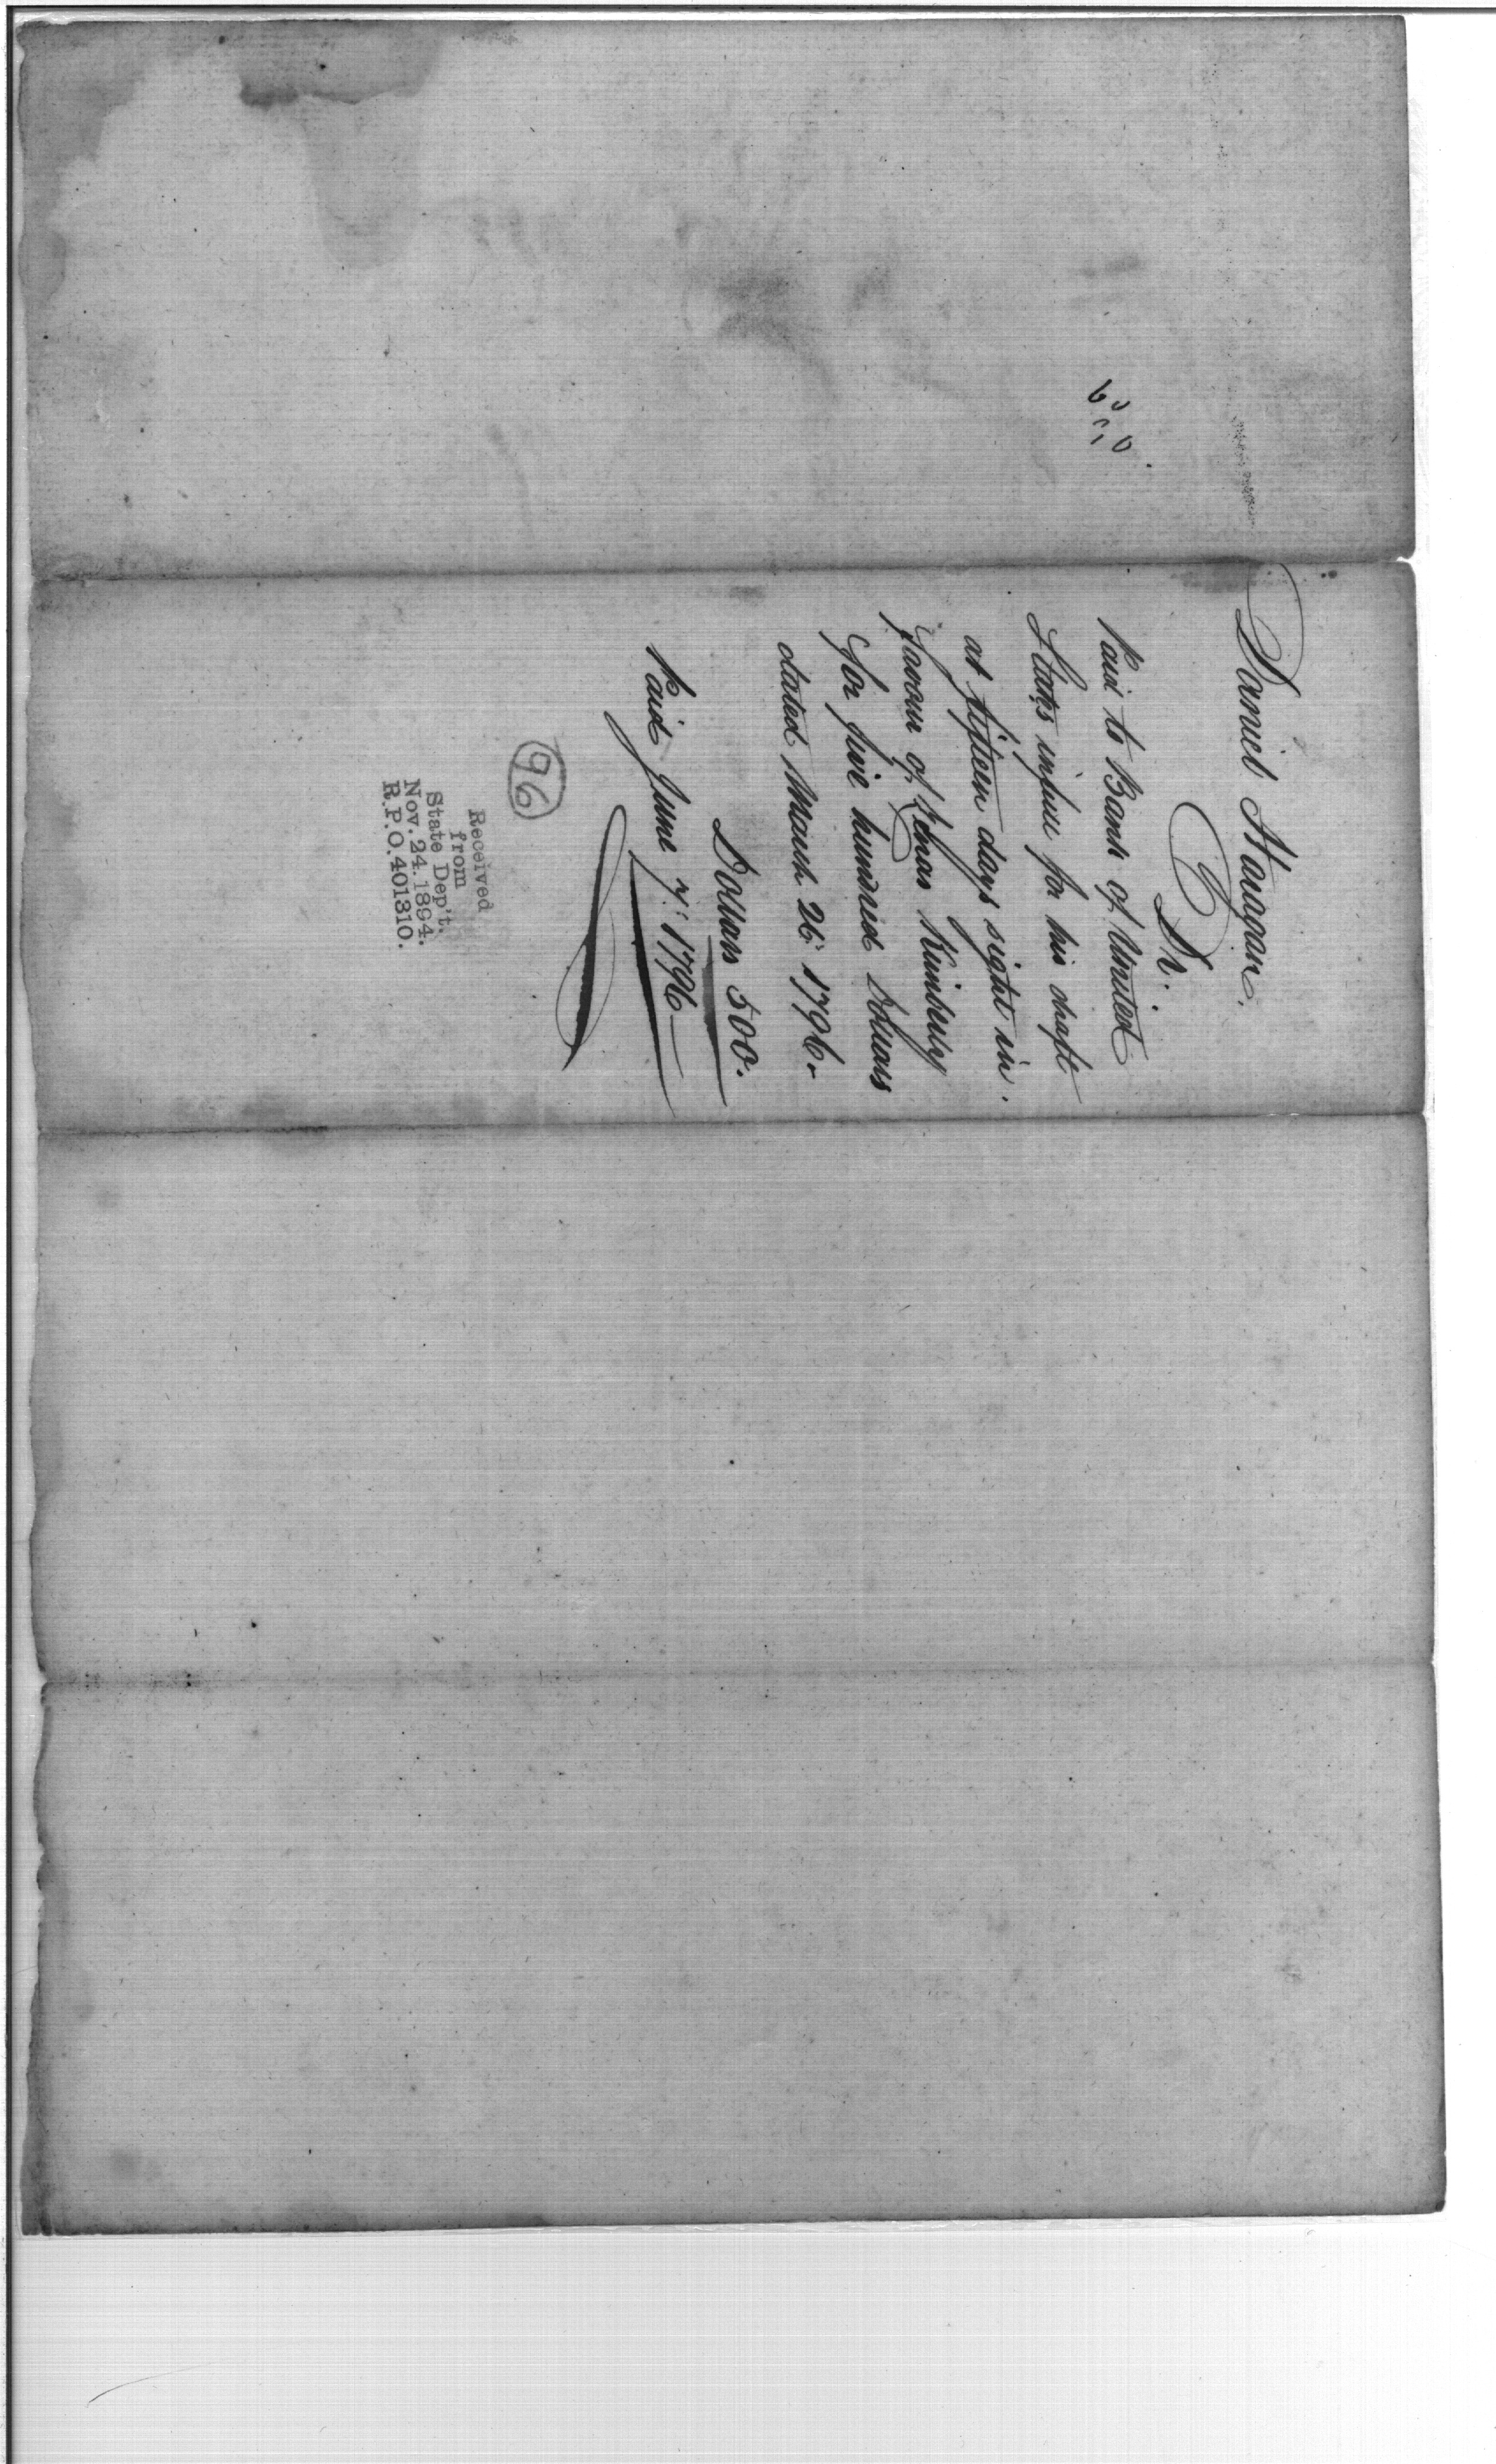 Daniel
Dr.
Paid to Bank of United
States infull for his draft
at fifteen days sight in
favour of Kimberly
for five hundred Dollars
dated March 26. 1796.
Dollars 500.
Paid June 7. 1796
96
Received
from
State Dep't.
Nov. 24. 1894.
R.P.O. 401310.